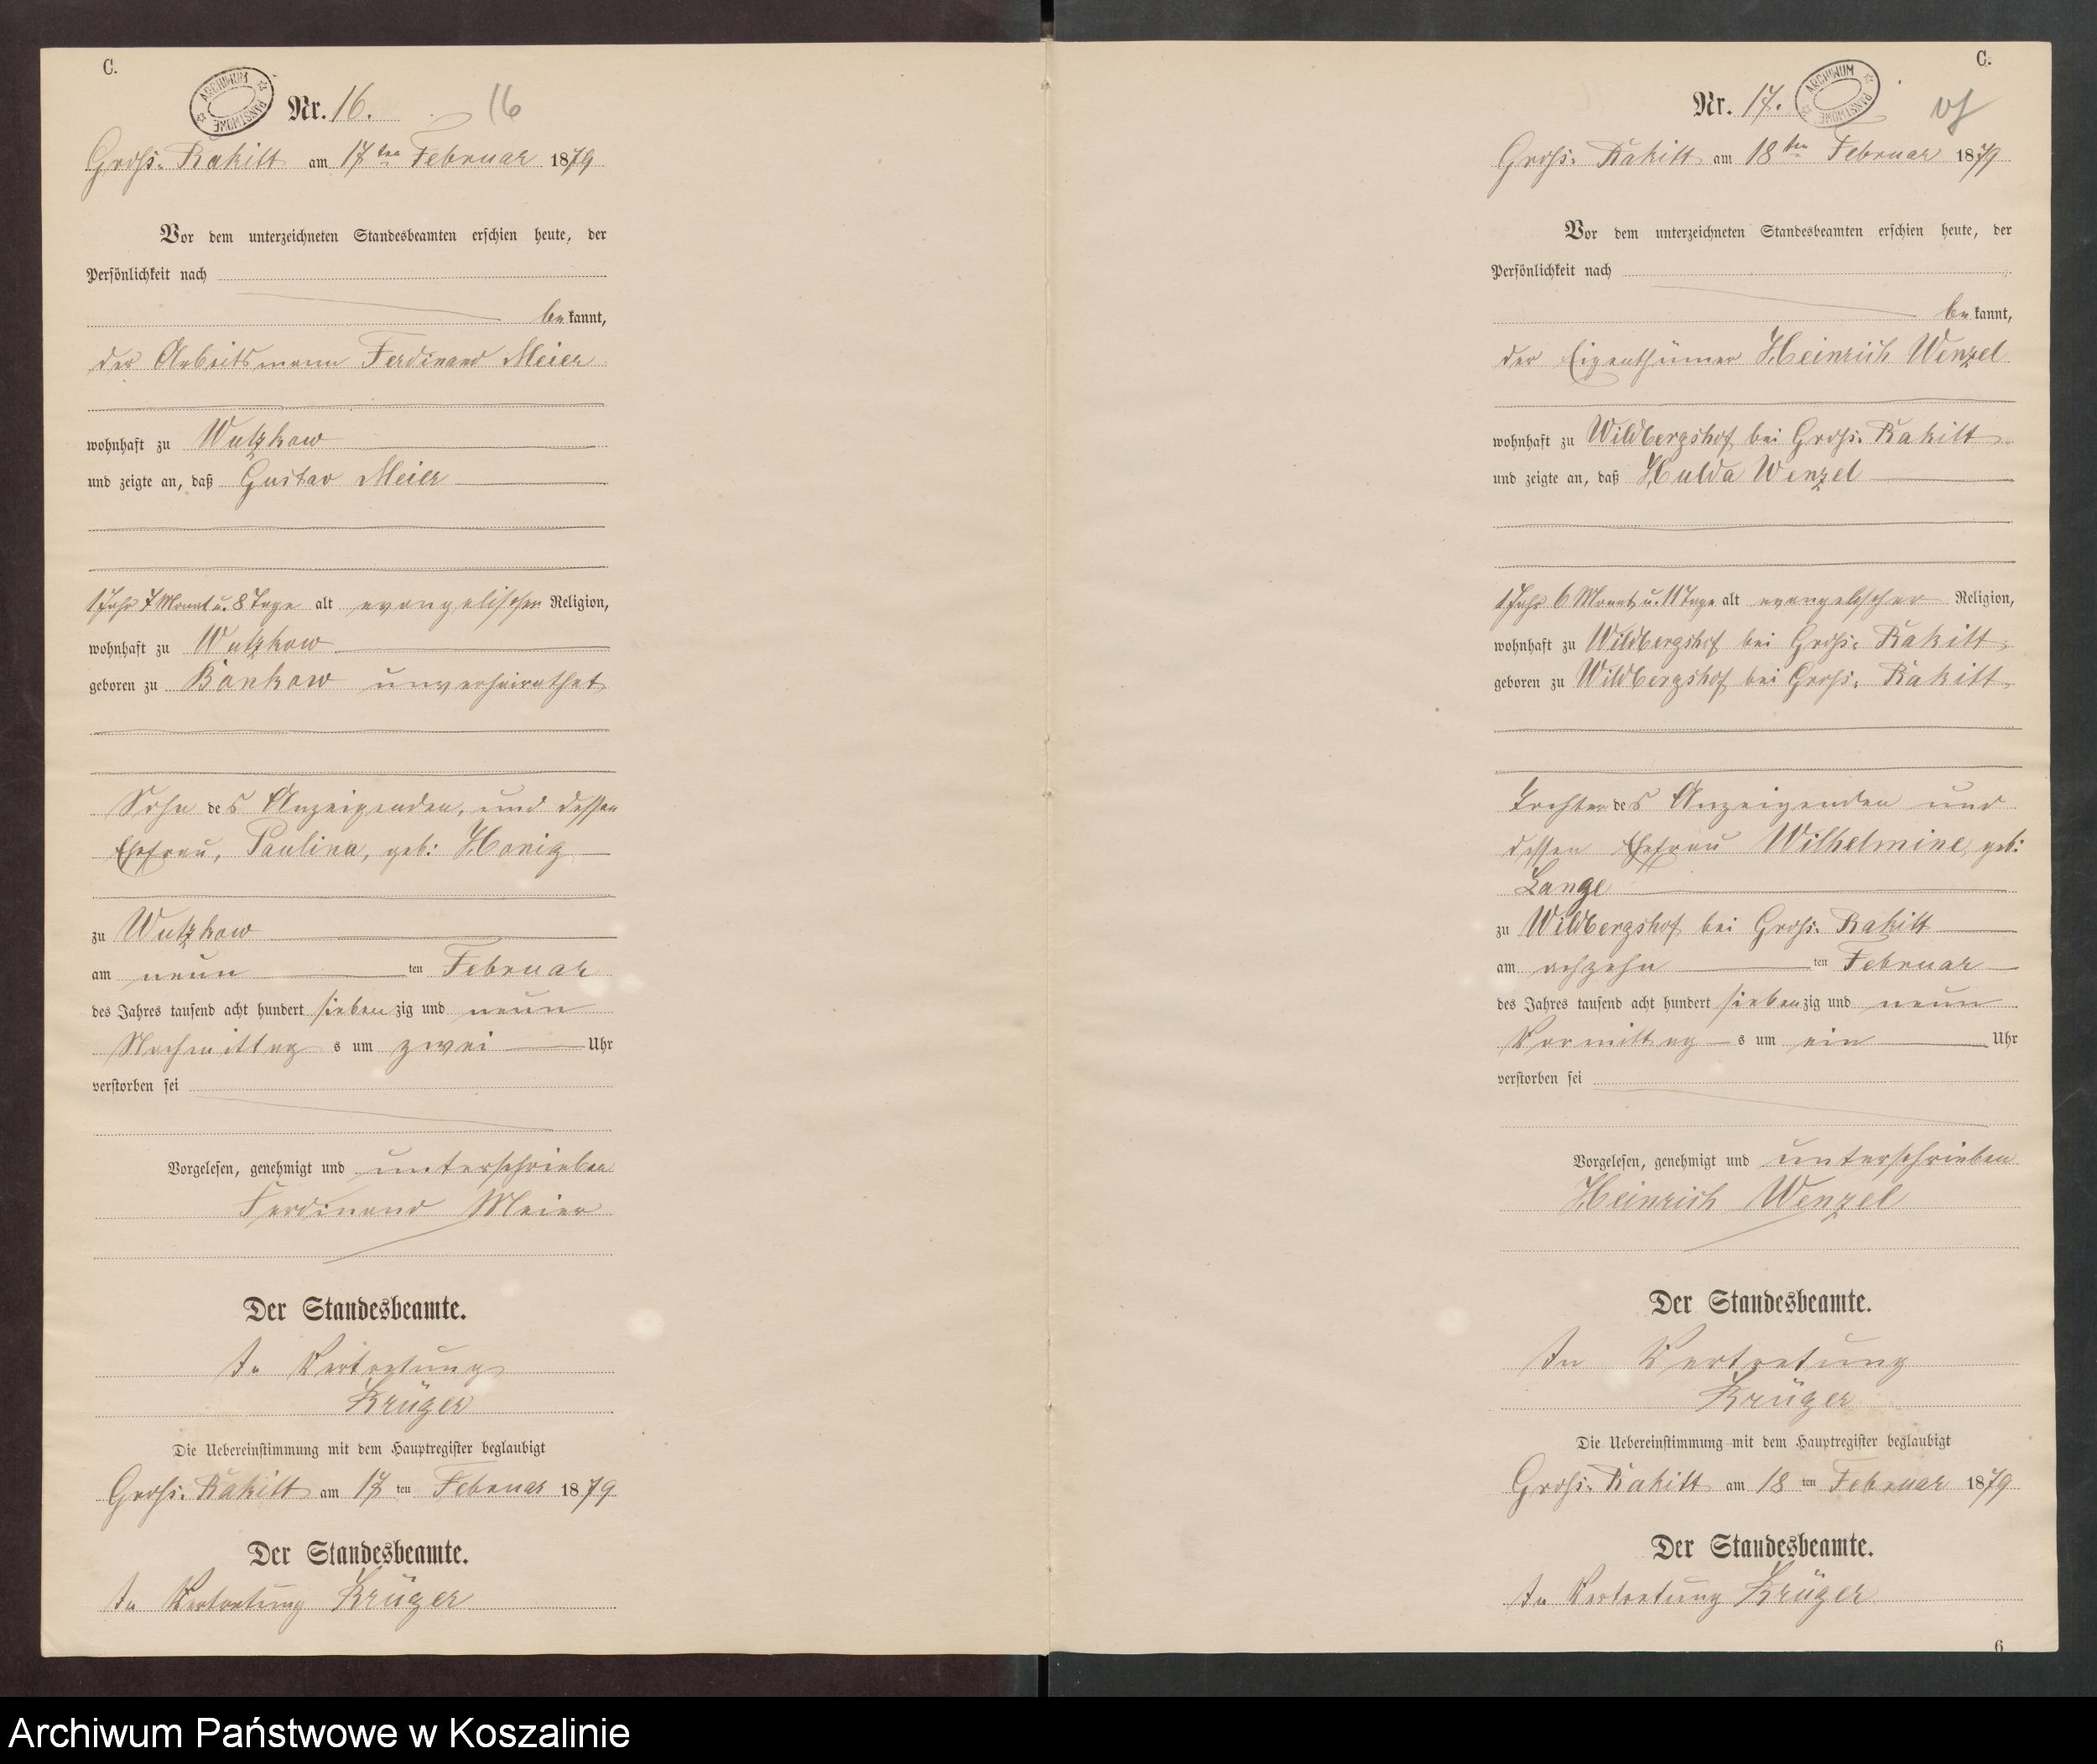 C.
ARCHIWUM PAŃSTWOWE
Nr. 16.
16
Groß-Rakitt am 17ten Februar 1879
Vor dem unterzeichneten Standesbeamten erschien heute, der
Persönlichkeit nach
bekannt,
der Arbeitsmann Ferdinand Meier
wohnhaft zu Wutzkow
und zeigte an, daß Gustav Meier
1 Jahr 7 Monat u. 8 Tage alt evangelischer Religion,
wohnhaft zu Wutzkow
geboren zu unverheirathet
Sohn des Anzeigenden, und dessen
Ehefrau, Paulina, geb: Honig
zu Wutzkow
am neun ten Februar
des Jahres tausend acht hundert siebenzig und neun
Nachmittags um zwei Uhr
verstorben sei
Vorgelesen, genehmigt und unterschrieben
Ferdinand Meier
Der Standesbeamte.
In Vertretung
Krüger
Die Uebereinstimmung mit dem Hauptregister beglaubigt
Groß-Rakitt am 17ten Februar 1879
Der Standesbeamte.
In Vertretung Krüger
C.
Nr. 17.
ARCHIWUM PAŃSTWOWE
Groß-Rakitt am 18ten Februar 1879
Vor dem unterzeichneten Standesbeamten erschien heute, der
Persönlichkeit nach
bekannt,
der Eigenthümer Heinrich Wenzel
wohnhaft zu Wildbergshof bei Groß-Rakitt
und zeigte an, daß Hulda Wenzel
1 Jahr 6 Monat u. 11 Tage alt evangelischer Religion,
wohnhaft zu Wildbergshof bei Groß-Rakitt
geboren zu Wildbergshof bei Groß-Rakitt
Tochter des Anzeigenden und
dessen Ehefrau Wilhelmine, geb:
Lange
zu Wildbergshof bei Groß-Rakitt
am achzehn ten Februar
des Jahres tausend acht hundert siebenzig und neun
Vormittags um ein Uhr
verstorben sei
Vorgelesen, genehmigt und unterschrieben
Heinrich Wenzel
Der Standesbeamte.
In Vertretung
Krüger
Die Uebereinstimmung mit dem Hauptregister beglaubigt
Groß-Rakitt am 18ten Februar 1879
Der Standesbeamte.
In Vertretung Krüger
6
Archiwum Państwowe w Koszalinie